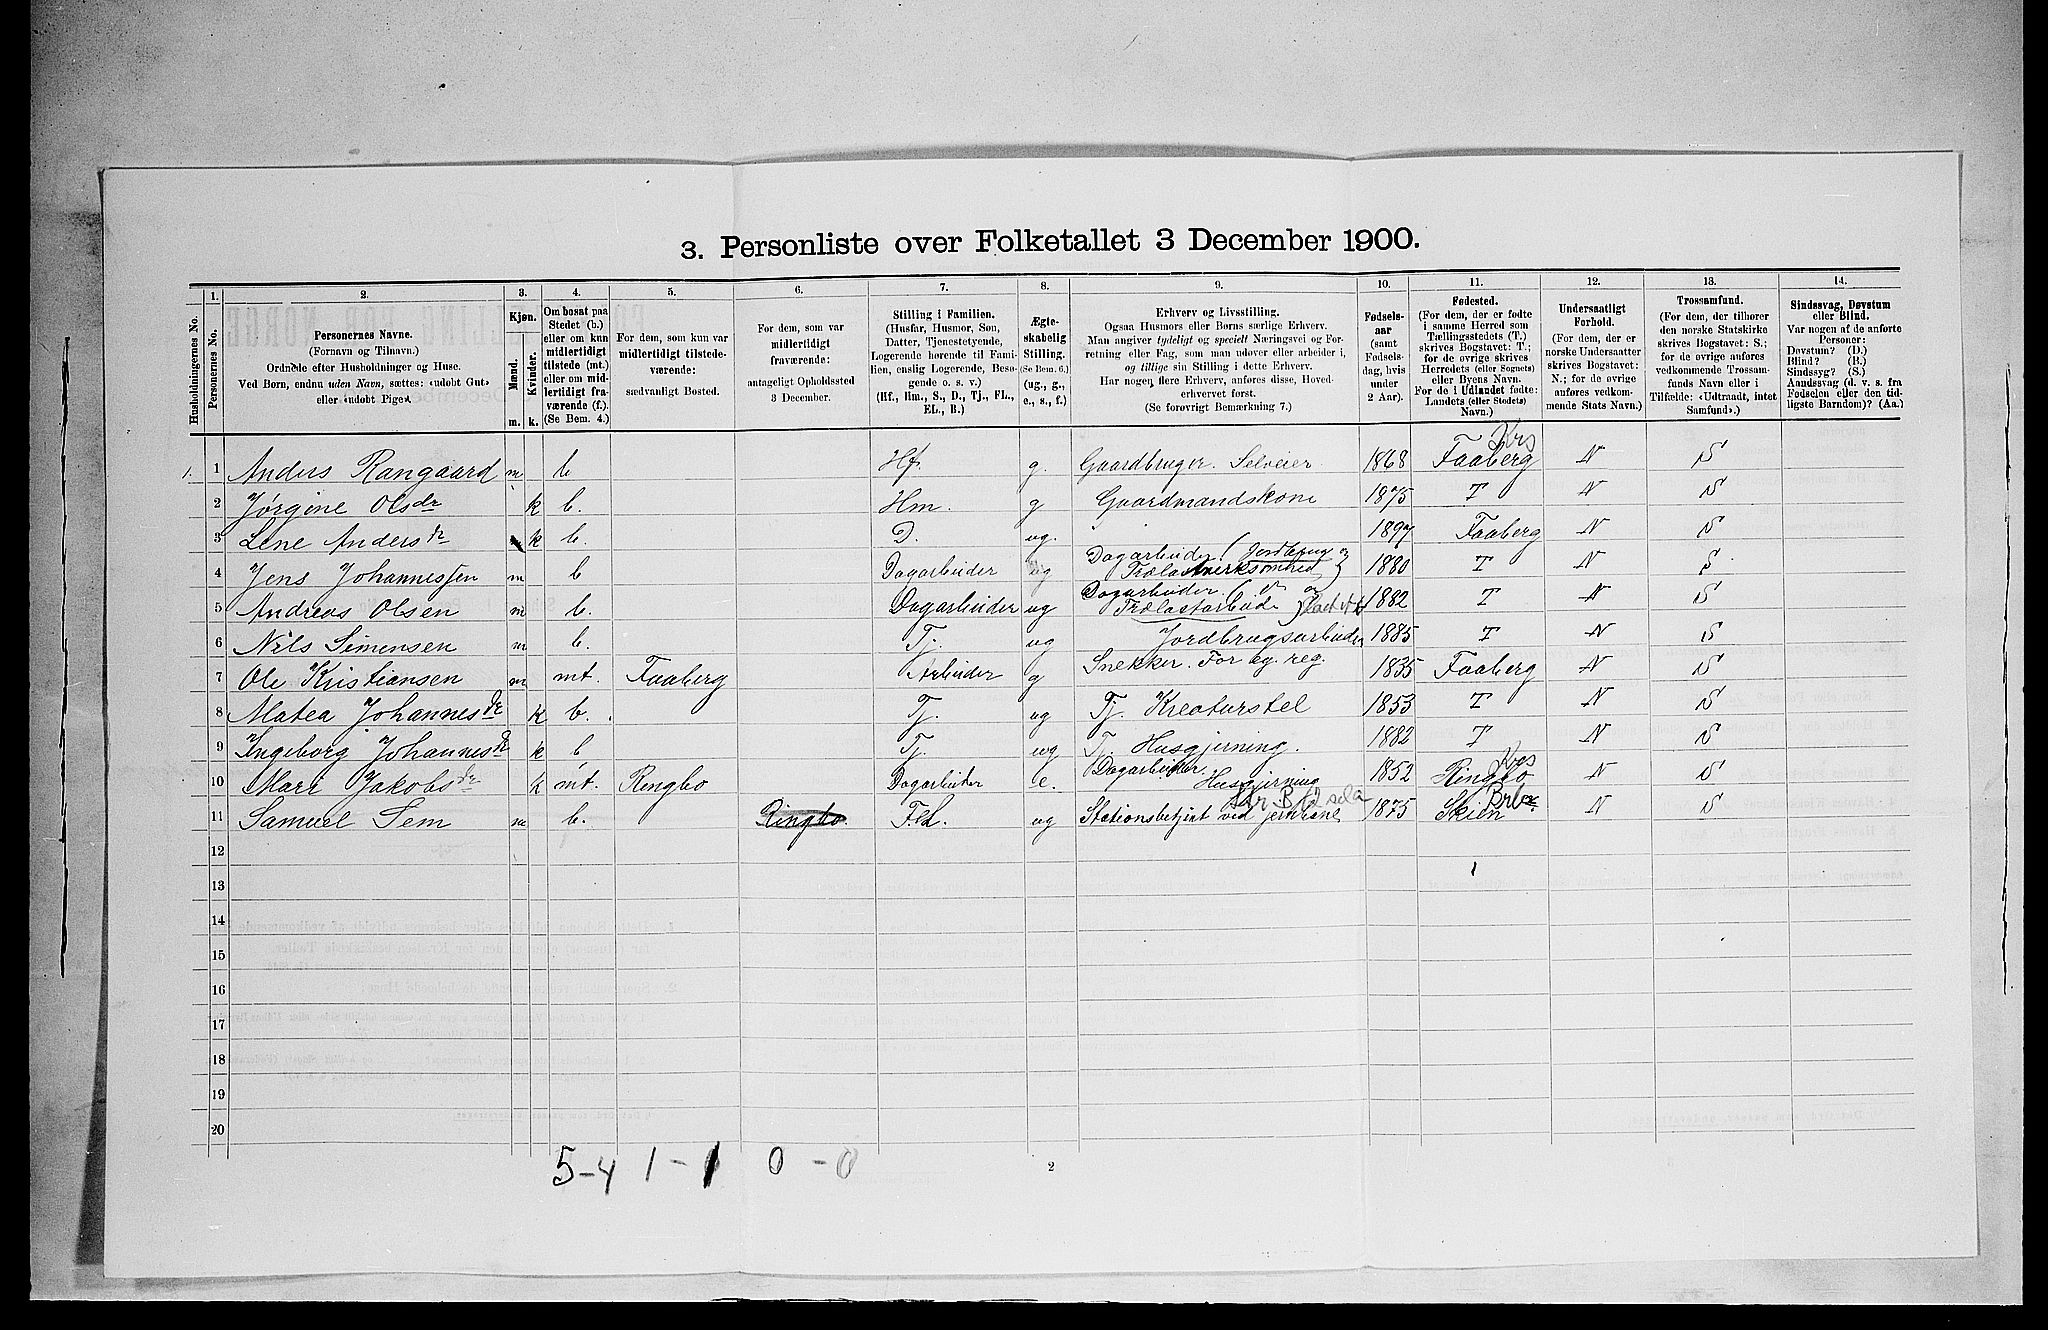 3. Personliste over Folketallet 3 December 1900.
1. 2. 3. 4. 5. 6. 7. 8. 9. 10. 11. 12. 13. 14.
Husholdningernes No.
Personernes No.
Personernes Navne.
(Fornavn og Tilnavn.)
Ordnede efter Husholdninger og Huse.
Ved Børn, endnu uden Navn, sættes: «udøbt Gut»
eller «udøbt Pige».
Kjøn.
Mænd.
Kvinder.
m. k.
Om bosat paa
Stedet (b.)
eller om kun
midlertidigt
tilstede (mt.)
eller om mid-
lertidigt fra-
værende (f.).
(Se Bem. 4.)
For dem, som kun var
midlertidigt tilstede-
værende:
sædvanligt Bosted.
For dem, som var
midlertidigt
fraværende:
antageligt Opholdssted
3 December.
Stilling i Familien.
(Husfar, Husmor, Søn,
Datter, Tjenestetyende,
Logerende hørende til Fami-
lien, enslig Logerende, Besø-
gende o. s. v.)
(Hf., Hm., S., D., Tj., FL.,
EL., B.)
Ægte-
skabelig
Stilling.
(Se Bem. 6.)
(ug., g.,
e., s., f.)
Erhverv og Livsstilling.
Ogsaa Husmors eller Børns særlige Erhverv.
Man angiver tydeligt og specielt Næringsvei og For-
retning eller Fag, som man udøver eller arbeider i,
og tillige sin Stilling i dette Erhverv.
Har nogen flere Erhverv, anføres disse, Hoved-
erhvervet først.
(Se forøvrigt Bemærkning 7.)
Fødsels-
aar
(samt
Fødsels-
dag, hvis
under
2 Aar).
Fødested.
(For dem, der er fødte
i samme Herred som
Tællingsstedets (T.)
skrives Bogstavet: T.;
for de øvrige skrives
Herredets (eller Sognets)
eller Byens Navn.
For de i Udlandet fødte:
Landets (eller Stedets)
Navn.)
Undersaatligt
Forhold.
(For dem, der er
norske Undersaatter
skrives Bogstavet:
N.; for de øvrige
anføres vedkom-
mende Stats Navn.)
Trossamfund.
(For dem, der tilhører
den norske Statskirke
skrives Bogstavet: S.;
for de øvrige anføres
vedkommende Trossam-
funds Navn eller i
Tilfælde: «Udtraadt, intet
Samfund».)
Sindssvag, Døvstum
eller Blind.
Var nogen af de anførte
Personer:
Døvstum? (D.)
Blind? (B.)
Sindssyg? (S.)
Aandssvag (d. v. s. fra
Fødselen eller den tid-
ligste Barndom)? (Aa.)
1. 1 Anders Rangaard m b Hf. g. Gaardbruger. Selveier. 1868 Faaberg Krs N S
2 Jørgine Olsdr k b. Hm. g Gaardmandskone 1875 T N S
3 Lene Andersdr k b. D. ug. 1897 Faaberg N S
4 Jens Johannessen m b Dagarbeider ug Dagarbeider (Jordbrug og Trælastverksomhed) 1880 T N S
5 Andreas Olsen m b. Dagarbeider ug Dagarbeider Trælastarbeide 1882 T N S
6 Nils Simensen m b. Tj. ug Jordbrugsarbeider 1885 T N S
7 Ole Kristiansen m mt. Faaberg Arbeider g Snekker. For eg. reg. 1835 Faaberg N S
8 Matea Johannesdr k b. Tj. ug Tj. Kreaturstel 1853 T N S
9 Ingeborg Johannesdr k b Tj. ug Tj. Husgjerning. 1882 T N S
10 Mari Jakobsdr k mt. Ringbo Dagarbeider e. Dagarbeider Husgjerning 1852 Ringbo Krs N S
11 Samuel Sem m b. Ringbo. FL. ug Stationsbetjent ved jernbane 1875 Skien N S
12
13
14
15
16
17
18
19
20
5-4 1-1 0-0
2